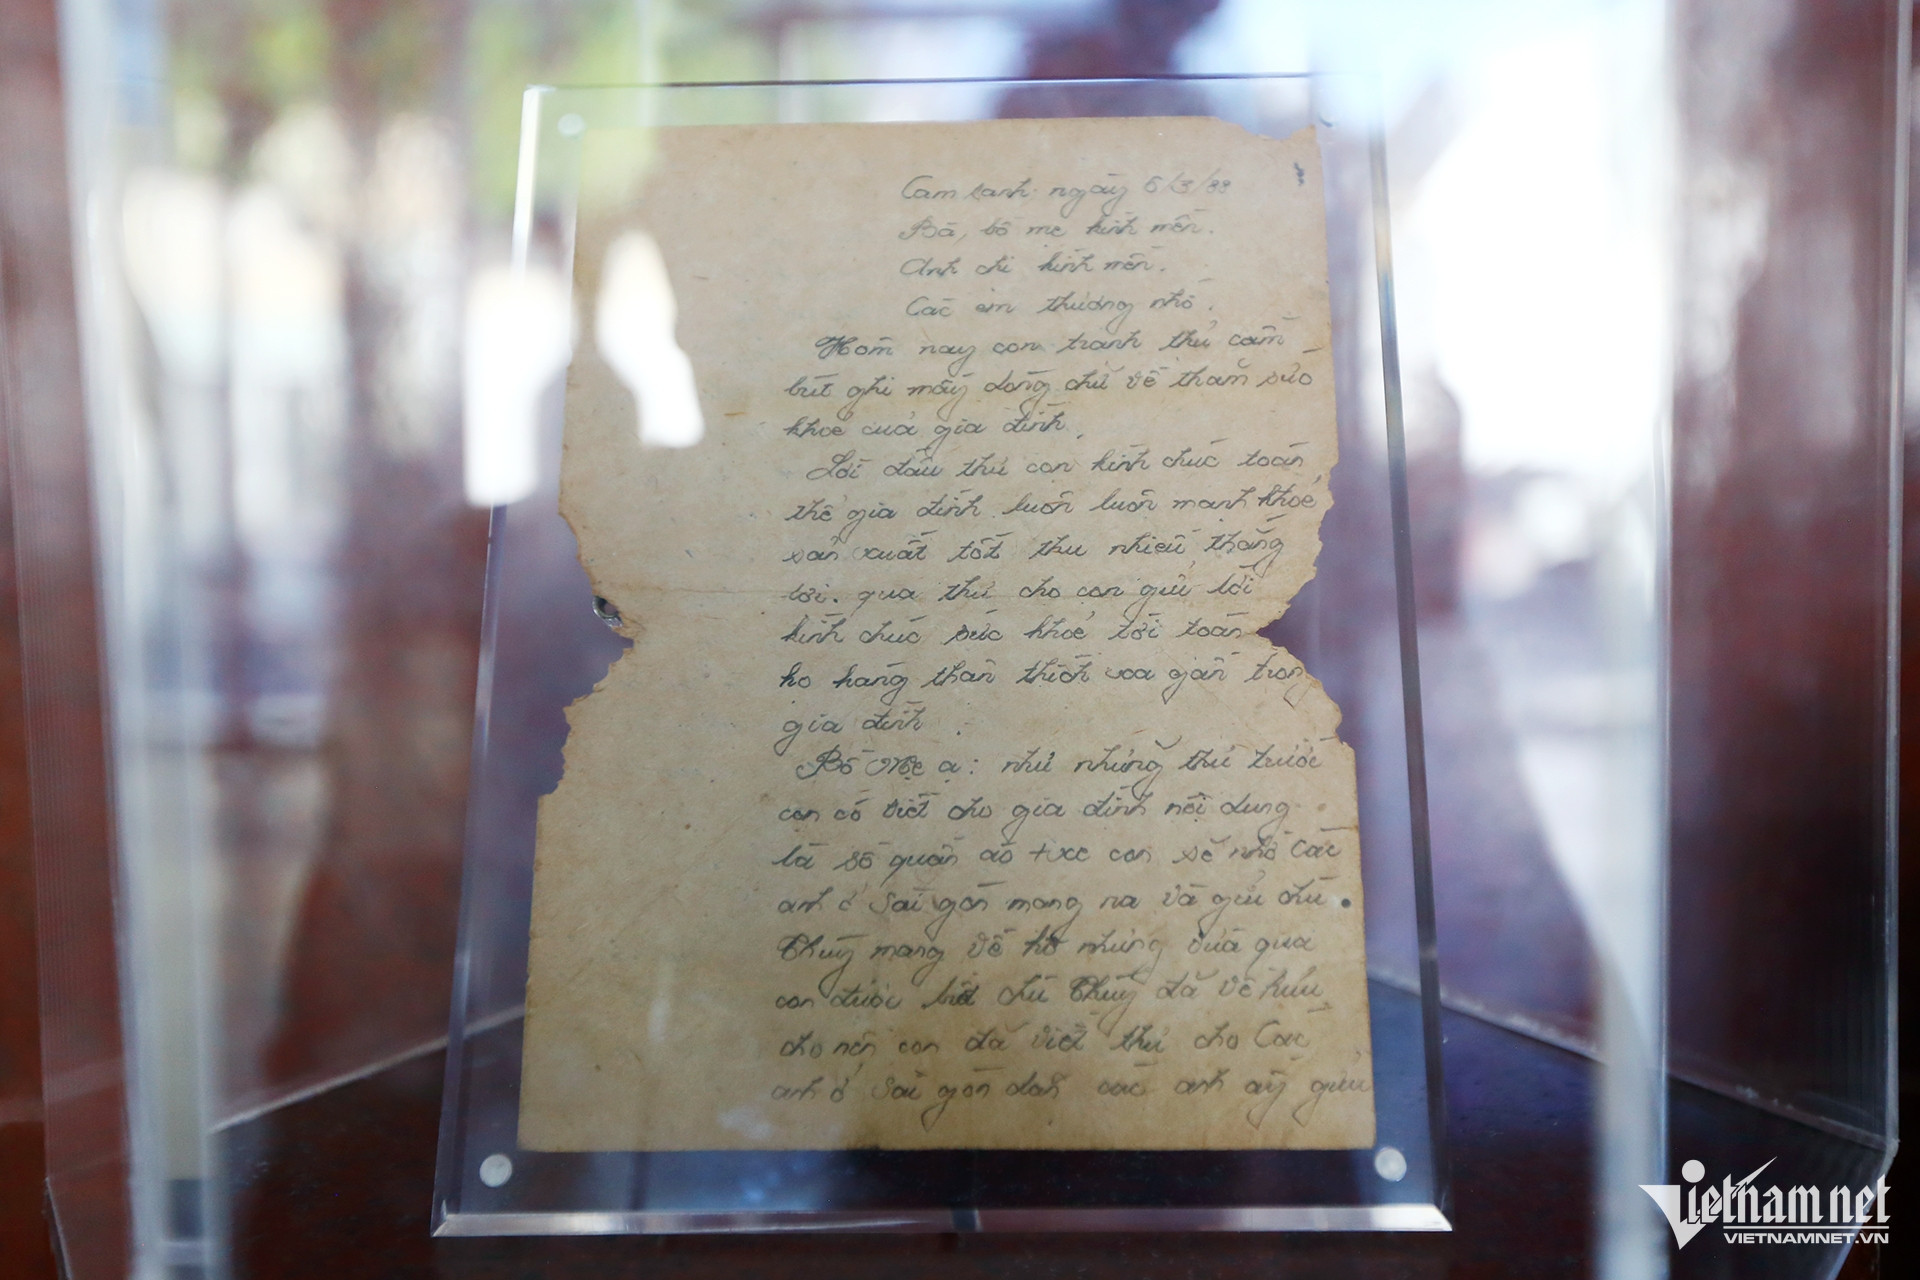 Cam ranh ngày 6/3/88
Bà, bố mẹ kính mến.
Anh chị kính mến.
Các em thương nhớ.
Hôm nay con tranh thủ cầm
bút ghi mấy dòng chữ về thăm sức
khoẻ của gia đình.
Lời đầu thư con kính chúc toàn
thể gia đình luôn luôn mạnh khoẻ
sản xuất tốt thu nhiều thắng
lợi. qua thư cho con gửi lời
kính chúc sức khoẻ tới toàn
họ hàng thân thích xa gần trong
gia đình.
Bố Mẹ ạ: như những thư trước
con có viết cho gia đình nội dung
là số quần áo + xe con sẽ nhờ Các
anh ở Sài gòn mang ra và gửi chú
Thuỷ mang về hộ nhưng vừa qua
con được biết chú Thuỷ đã về hưu
cho nên con đã viết thư cho Các
anh ở Sài gòn dặn các anh ấy gửi
Vietnamnet
VIETNAMNET.VN